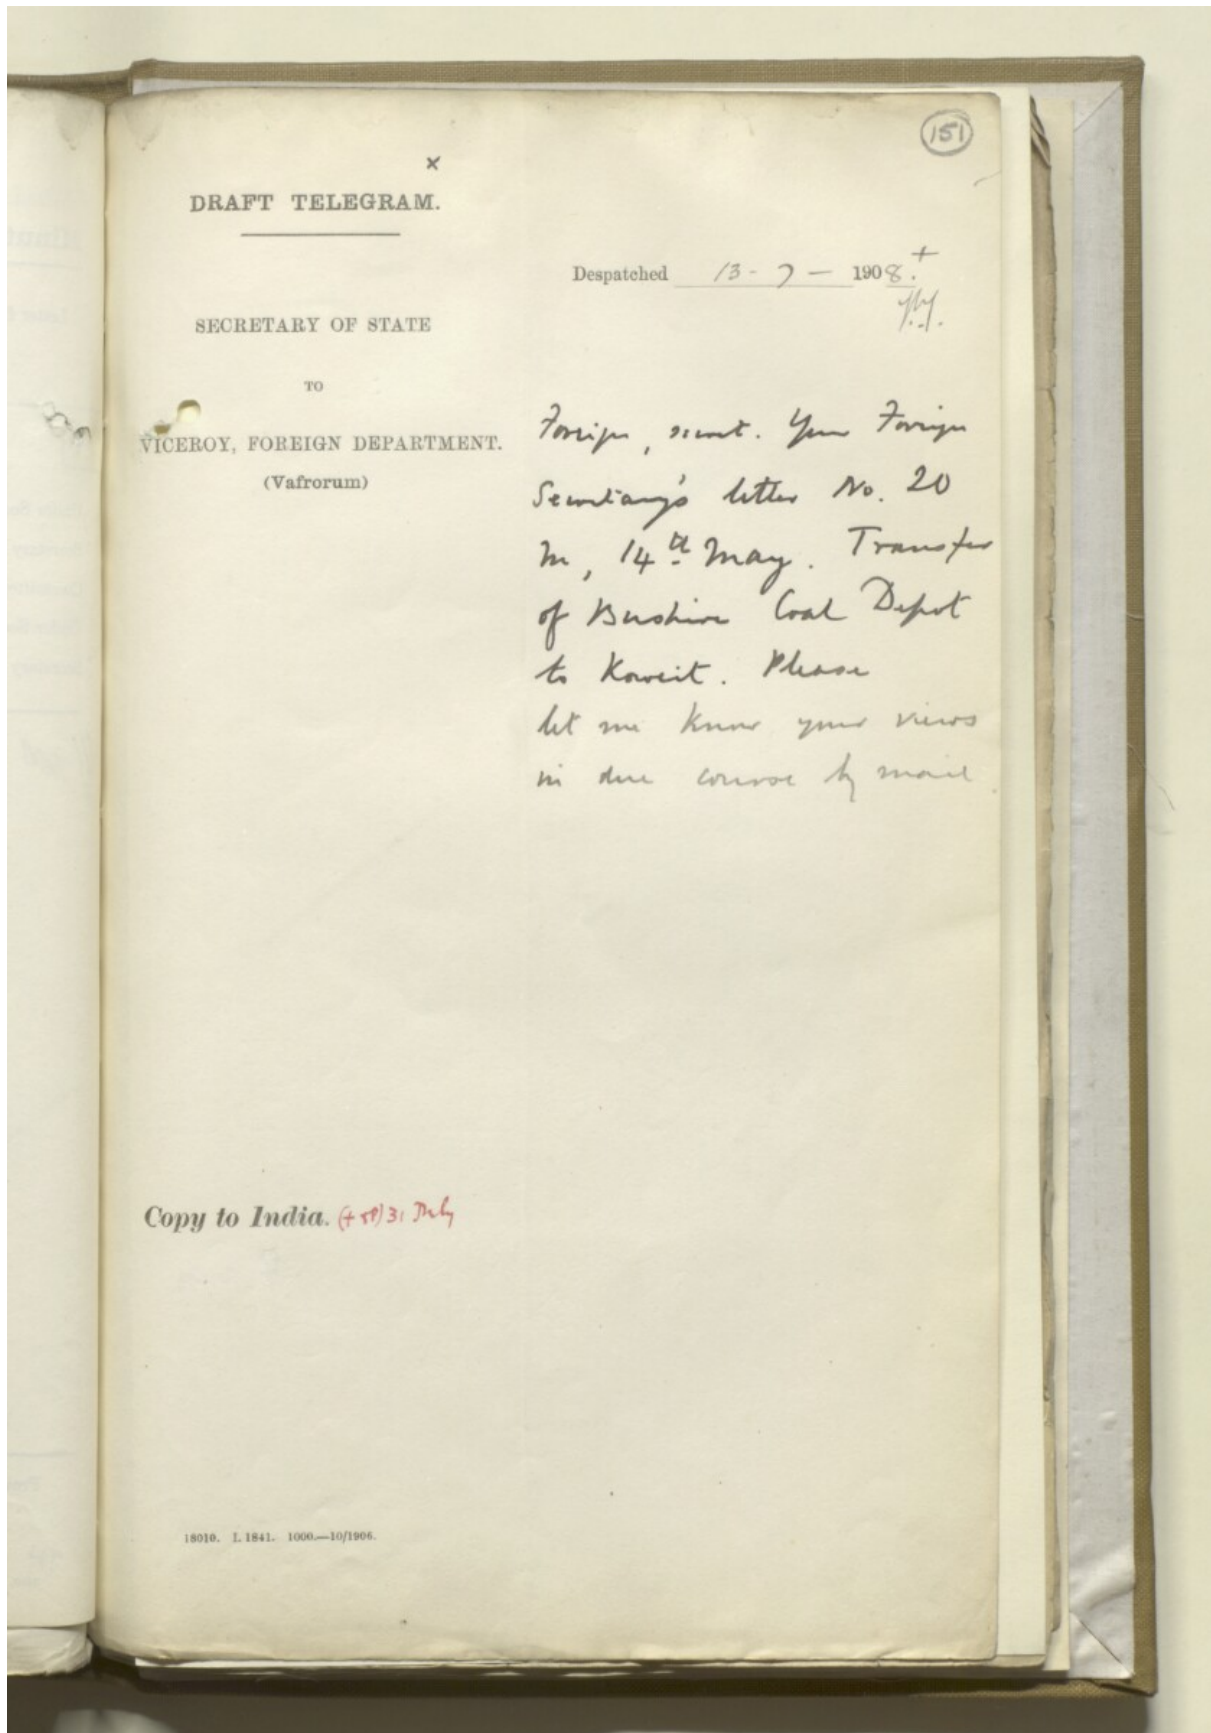 151
×
DRAFT TELEGRAM.
Despatched 13 - 7 - 1908. +
SECRETARY OF STATE
TO
VICEROY, FOREIGN DEPARTMENT.
(Vafrorum)
Foreign, secret. Your Foreign
Secretary's letter No. 20
M, 14th May. Transfer
of Bushire Coal Depot
to Koweit. Please
let me know your views
in due course by mail
Copy to India. 31 July
18010. I. 1841. 1000.—10/1906.